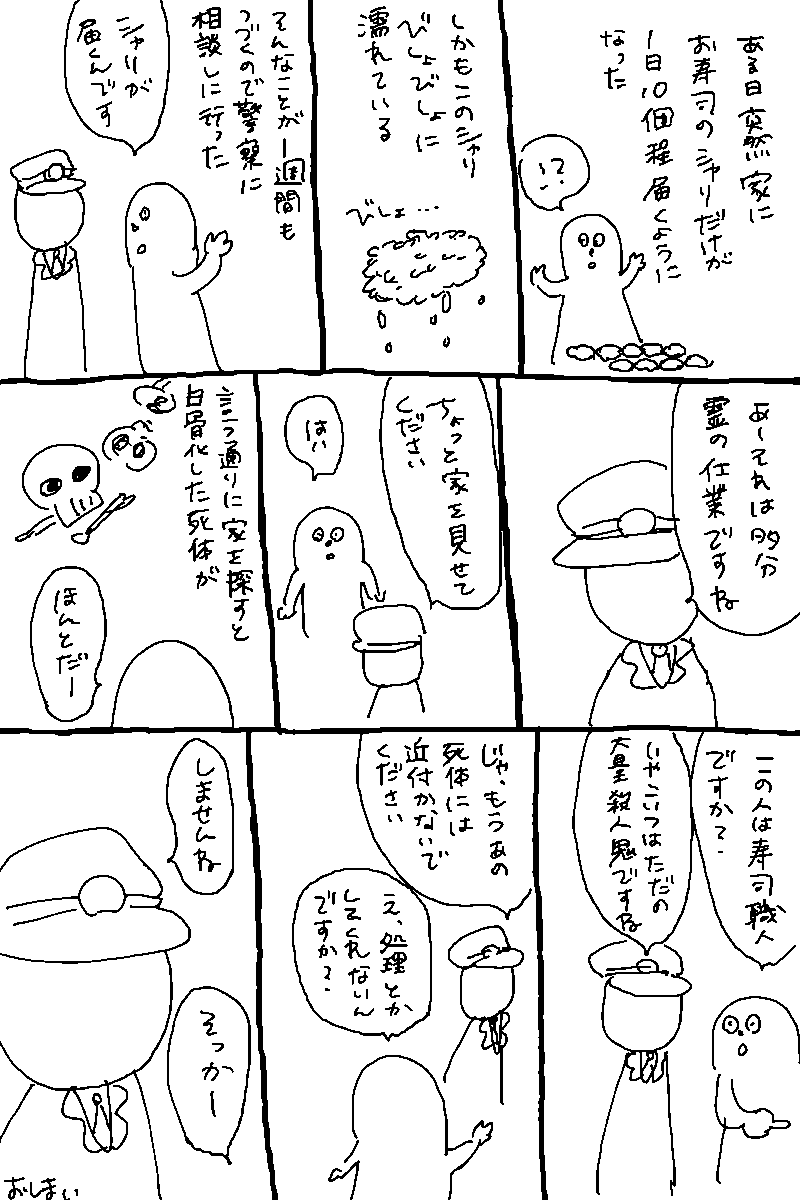 ある日突然家に
お寿司のシャリだけが
1日10個程届くように
なった
!?
しかもこのシャリ
びしょびしょに
濡れている
びしょ…
そんなことが一週間も
つづくので警察に
相談しに行った
シャリが
届くんです
あーそれは多分
霊の仕業ですね
ちょっと家を見せて
ください
はい
言う通りに家を探すと
白骨化した死体が
ほんとだー
この人は寿司職人
ですか?
いやこいつはただの
大量殺人鬼ですね
じゃ、もうあの
死体には
近付かないで
ください
え、処理とか
してくれないん
ですか?
しませんね
そっかー
おしまい